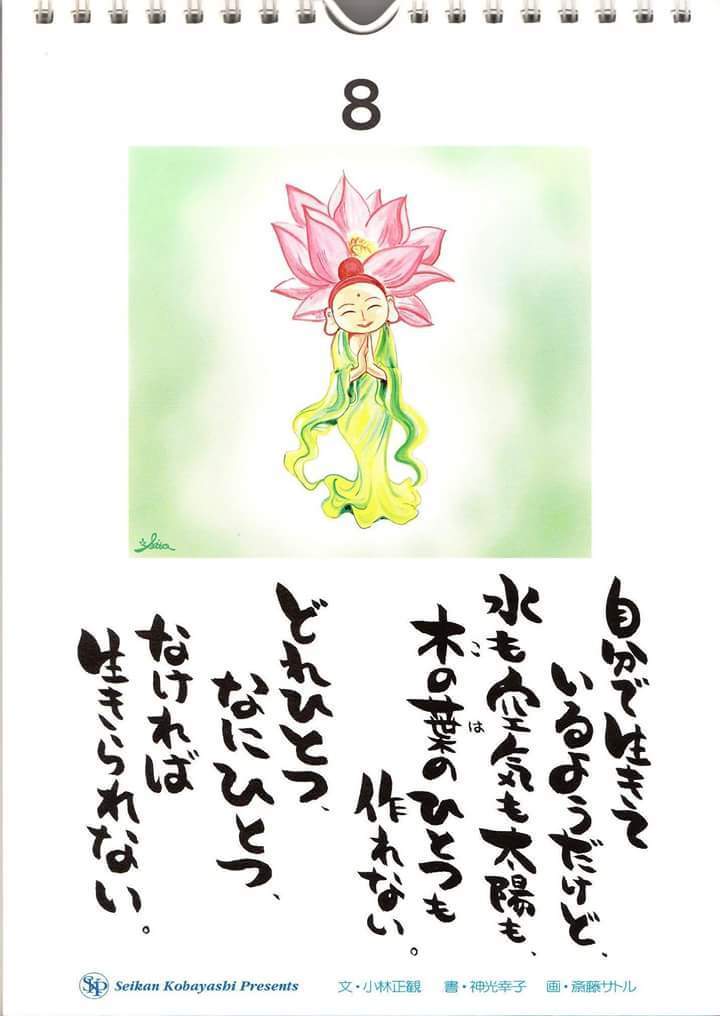 8
自分で生きて
いるようだけど、
水も空気も太陽も、
木の葉のひとつも
こ は
作れない。
どれひとつ、
なにひとつ、
なければ
生きられない。
SKP Seikan Kobayashi Presents 文・小林正観 書・神光幸子 画・斎藤サトル